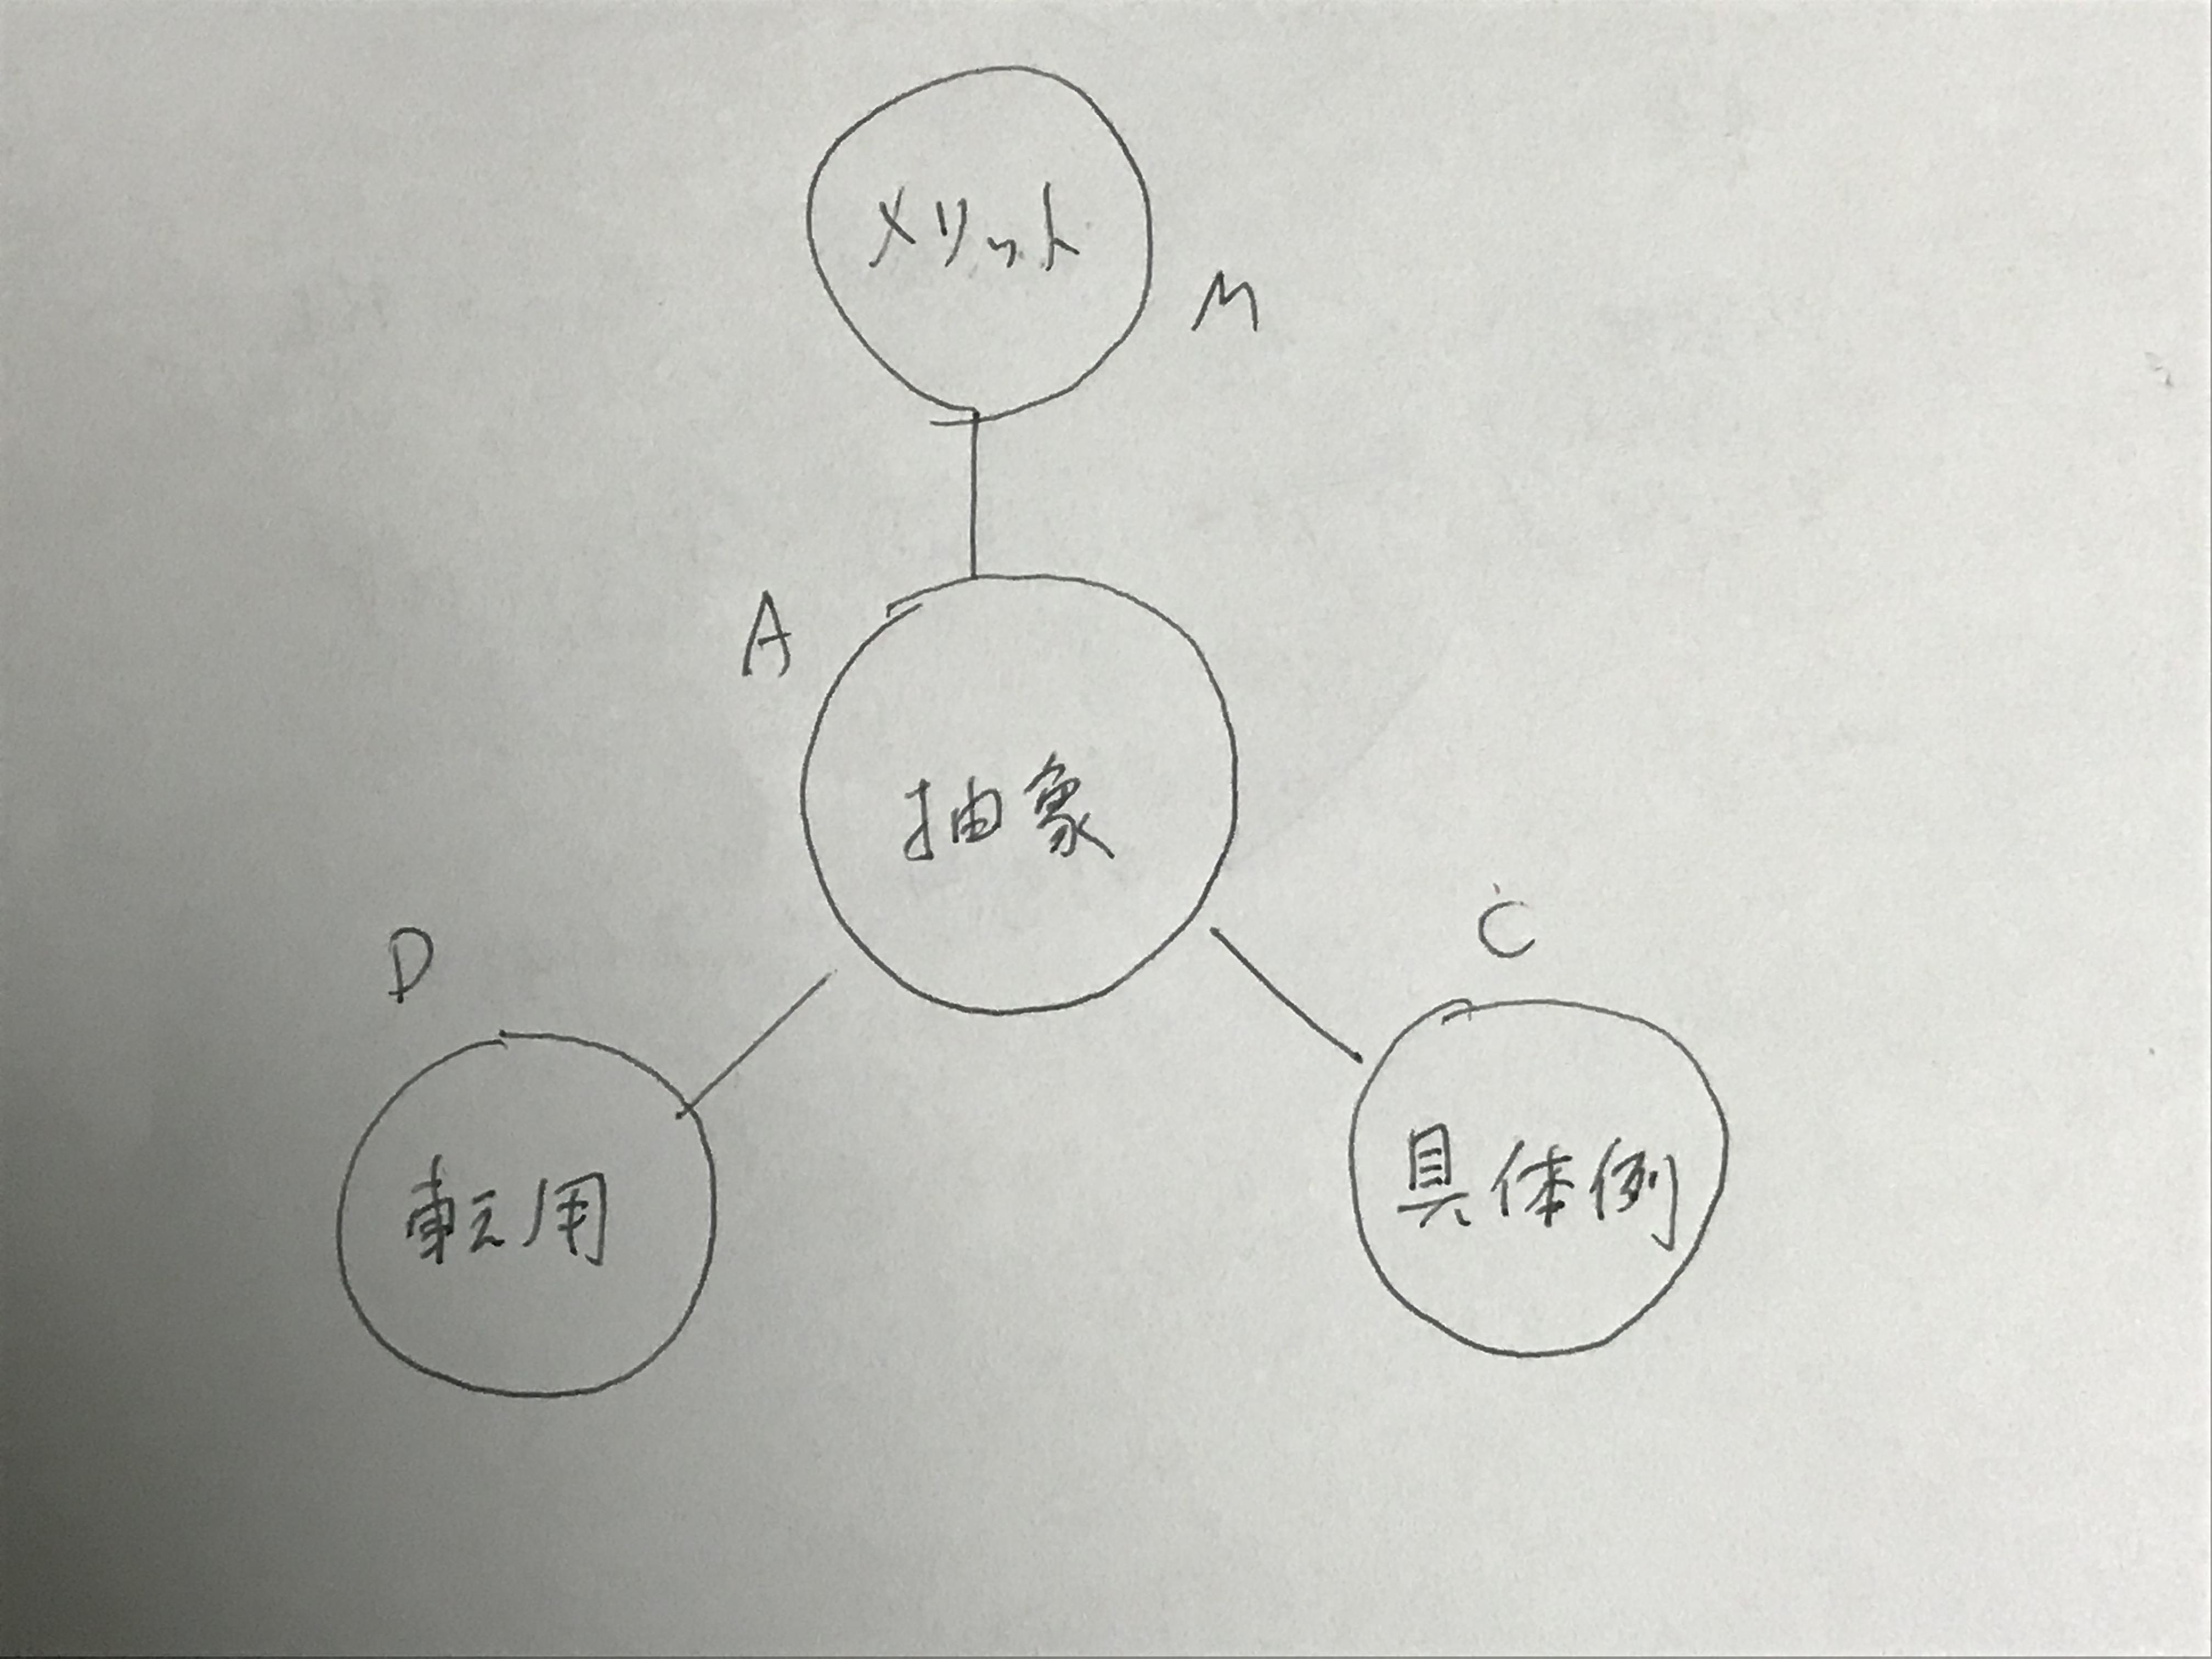 メリット
M
A
抽象
D
C
転用
具体例